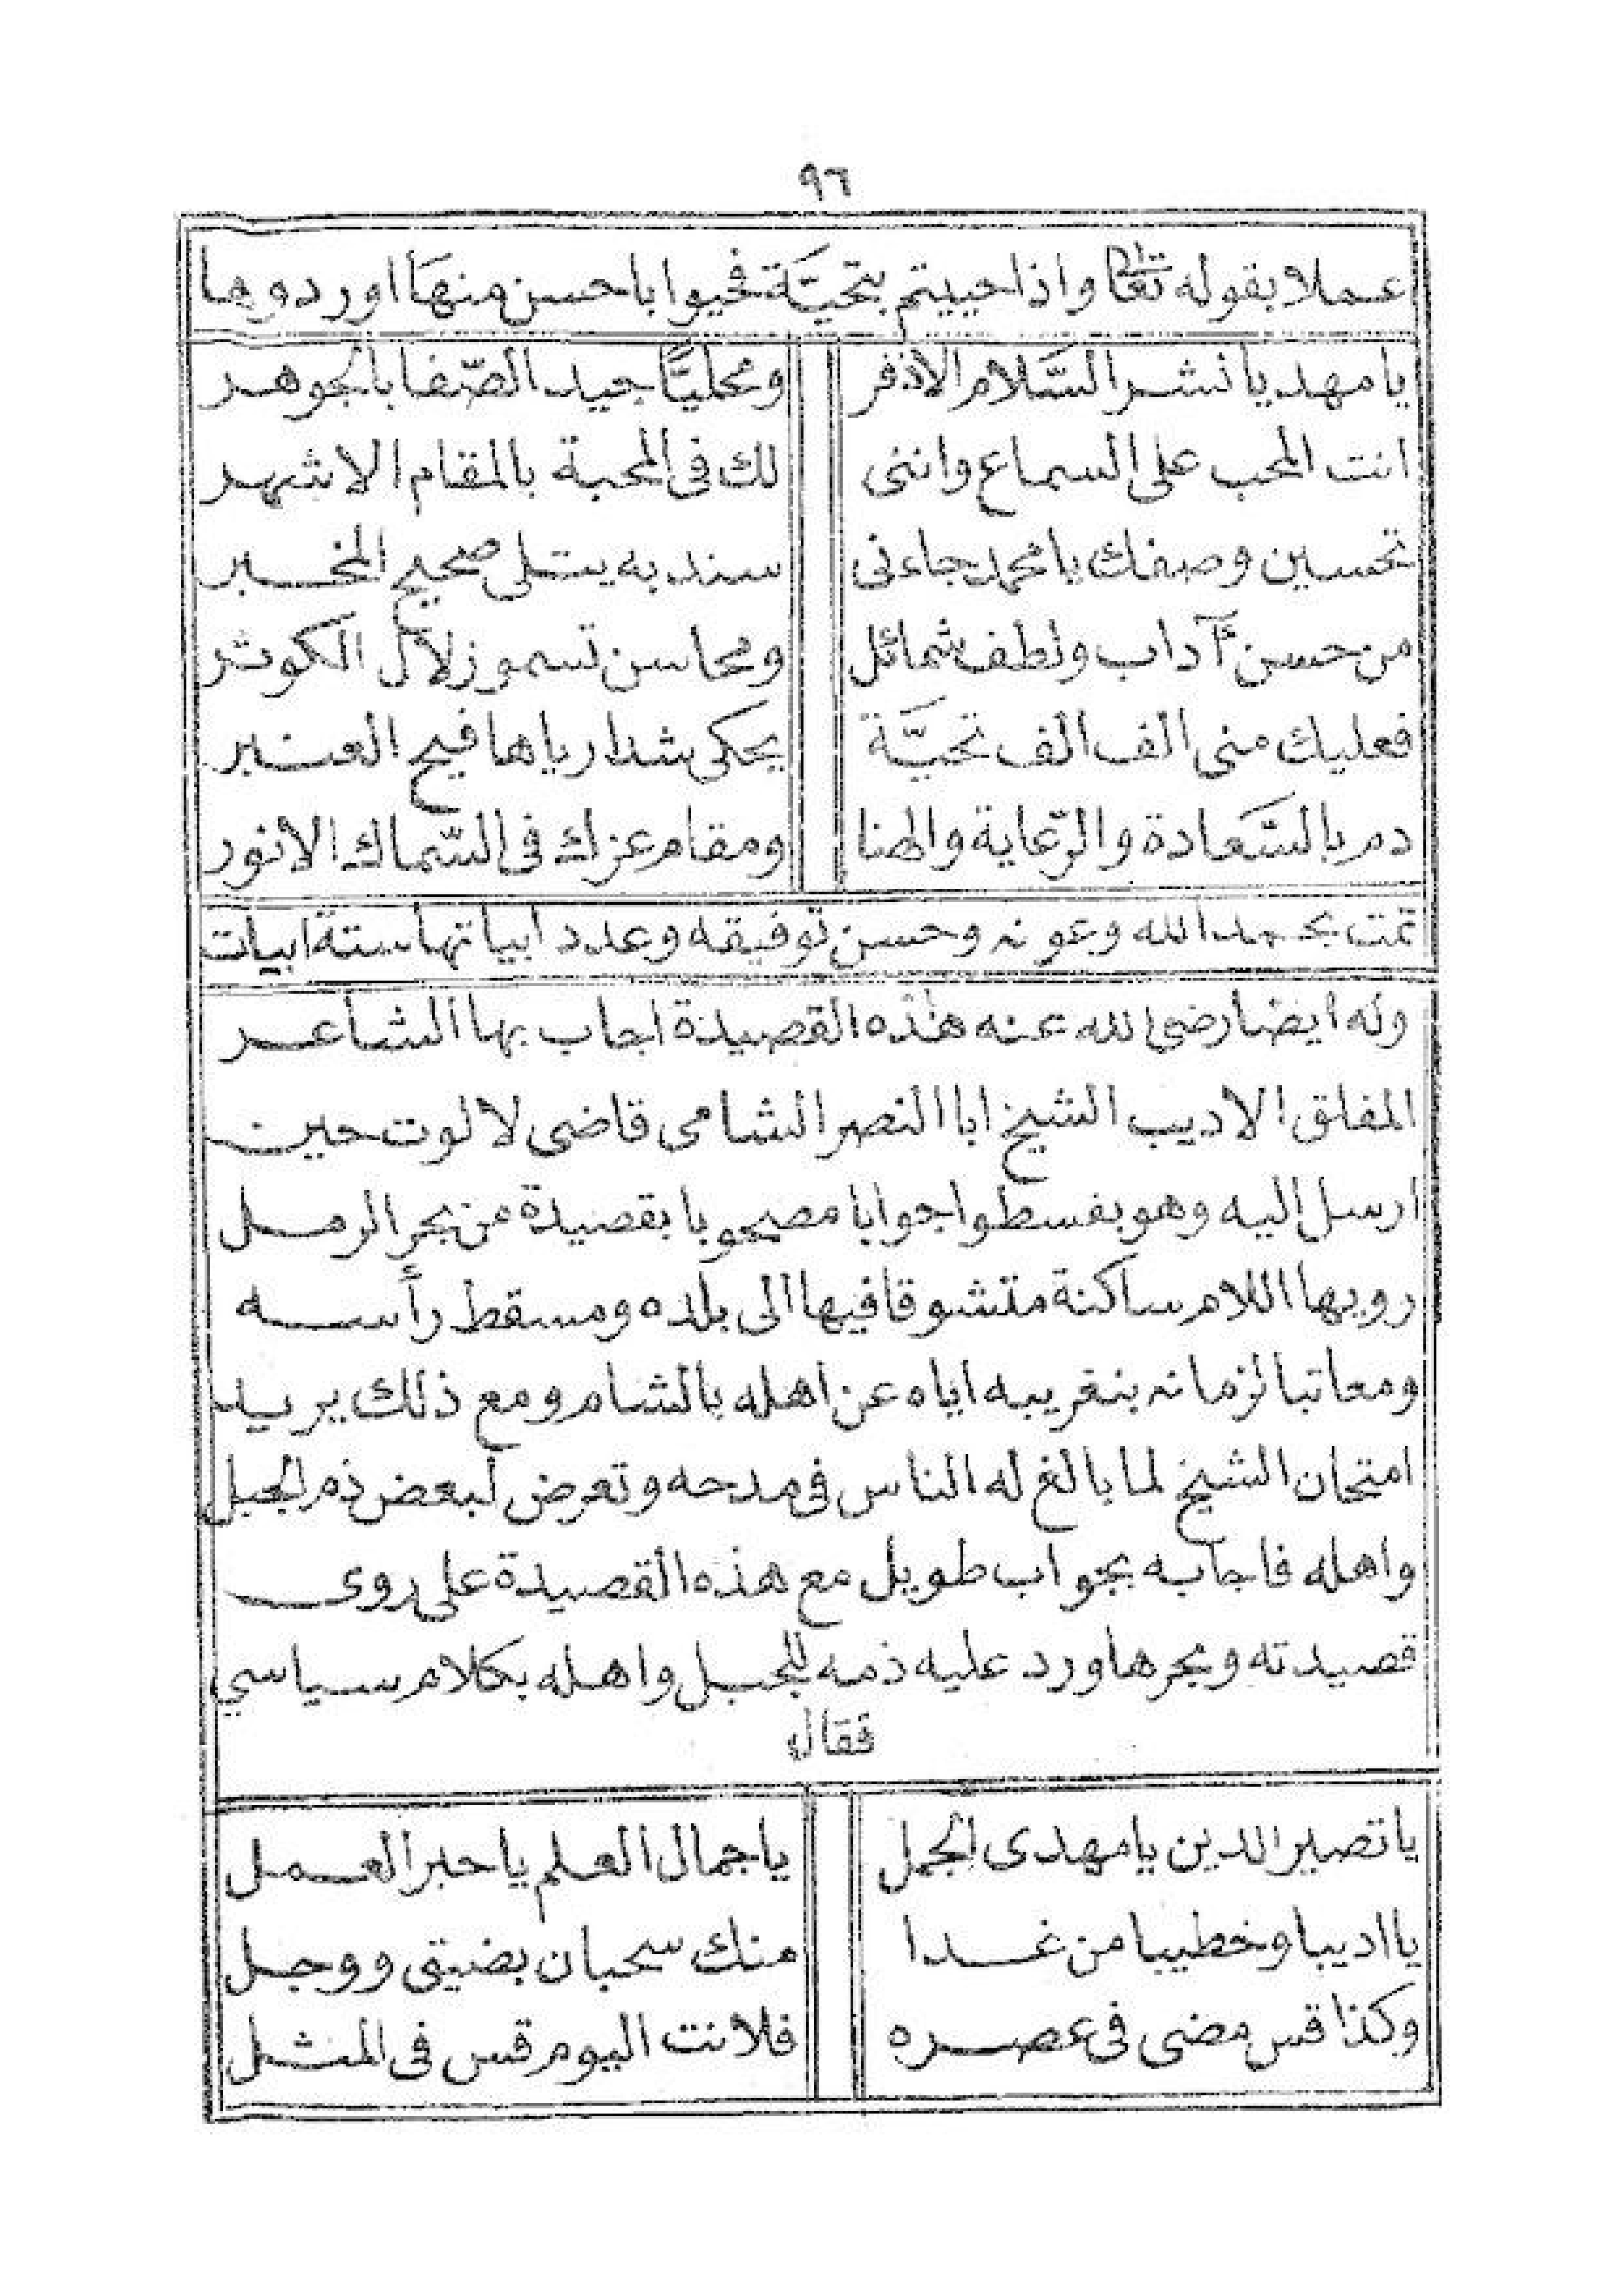 ٩٦
عملا بقوله تعالى واذا حييتم بتحيَّة فحيوا باحسن منهَا او ردوها
يا مهديا نشر السَّلام الأذفر ومحليًّا جيد الصّفا بالجوهر
انت المحب على السماع واننى لك فى المحبة بالمقام الاشهر
تحسين وصفك يا محمد جاءنى سند به يتلى صحيح المخبر
من حسن آداب ولطف شمائل ومحاسن تسمو زلال الكوثر
فعليك منى الف الف تحيَّة يحكى شدا رياها فيح العنبر
دم بالسَّعادة والرّعاية والهنا ومقام عزك فى السّماك الأنور
تمت بحمد الله وعونه وحسن توفيقه وعدد ابياتها ستة ابيات
وله ايضا رضى الله عنه هٰذه القصيدة اجاب بها الشاعر
المفلق الاديب الشيخ ابا النصر الشامى قاضى لالوت حين
ارسل اليه وهو بفسطوا جوابا مصحوبا بقصيدة من بحر الرمل
رويها اللام ساكنة متشوقا فيها الى بلده ومسقط رأسه
ومعاتبا لزمانه بتغريبه اياه عن اهله بالشام ومع ذلك يريد
امتحان الشيخ لما بالغ له الناس فى مدحه وتعرض لبعض ذم الجبل
واهله فاجابه بجواب طويل مع هذه القصيدة على روى
قصيدته وبحرها ورد عليه ذمه للجبل واهله بكلام سياسي
فقال
يا نصير الدين يا مهدى الجمل يا جمال العلم يا حبر العمل
يا اديبا وخطيبا من غدا منك سحبان بضيق ووجل
وكذا قس مضى فى عصره فلانت اليوم قس فى المثل